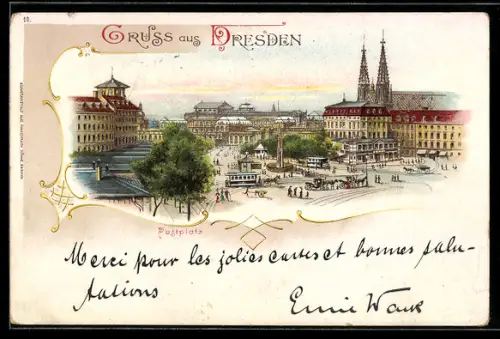 10.
GRUSS aus DRESDEN
Postplatz
Merci pour les jolies cartes et bonnes salu-
tations